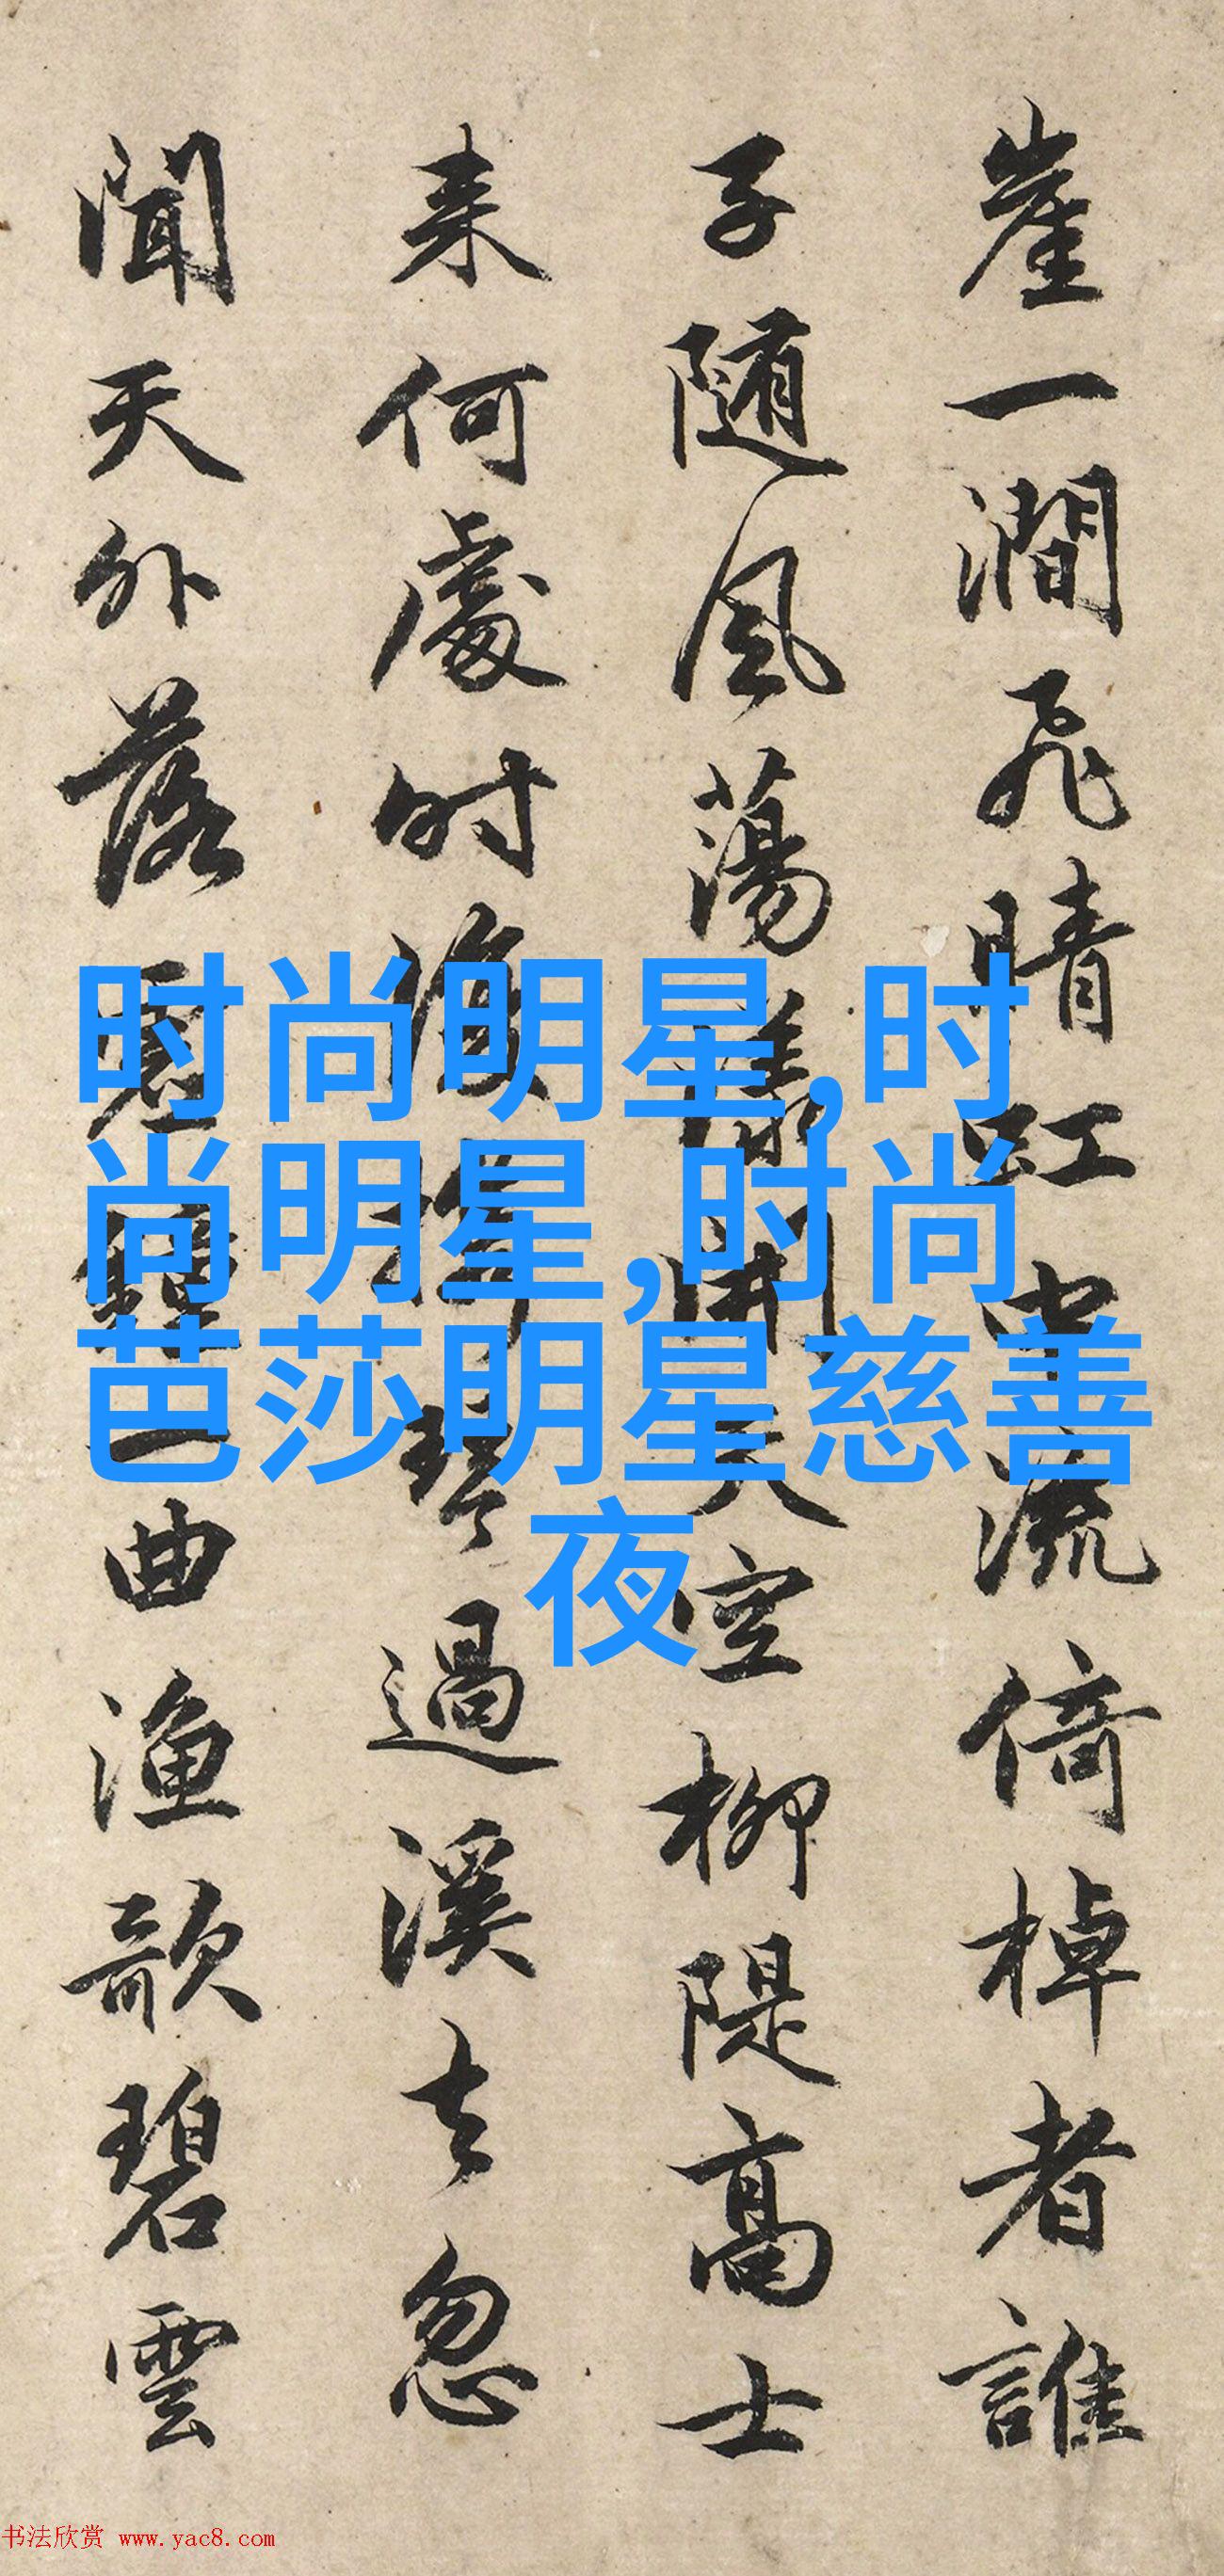 崖一澗飛晴虹中流倚棹者誰
子随風蕩漾空柳隄高士
来何處时琴過溪去忽
聞天外落一曲漁歌碧雲
时尚明星,时
尚明星,时尚
芭莎明星慈善
夜
书法欣赏 www.yac8.com